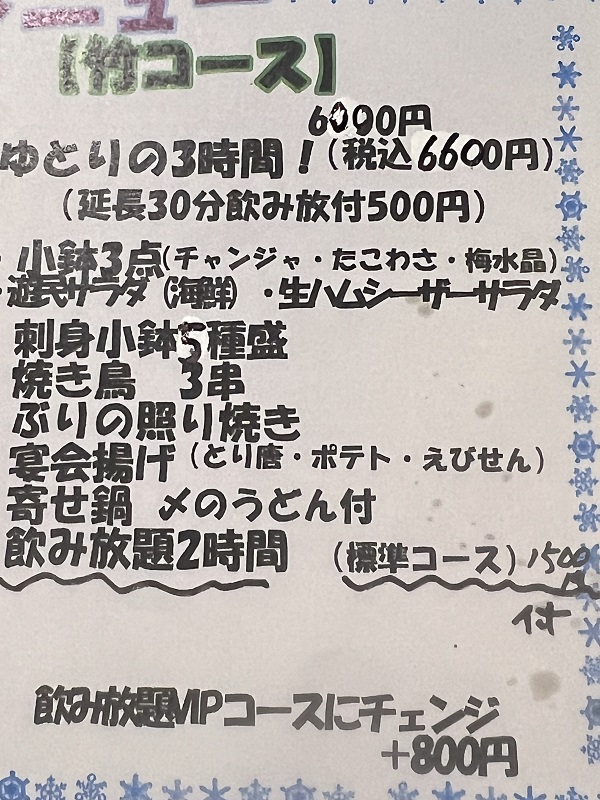 ニュー
【竹コース】
6000円
ゆとりの3時間！(税込6600円)
(延長30分飲み放付500円)
・小鉢3点(チャンジャ・たこわさ・梅水晶)
・遊民サラダ(海鮮)・生ハムシーザーサラダ
刺身小鉢5種盛
焼き鳥 3串
ぶりの照り焼き
宴会揚げ(とり唐・ポテト・えびせん)
寄せ鍋 〆のうどん付
飲み放題2時間 (標準コース) 1500円
付
飲み放題VIPコースにチェンジ
+800円